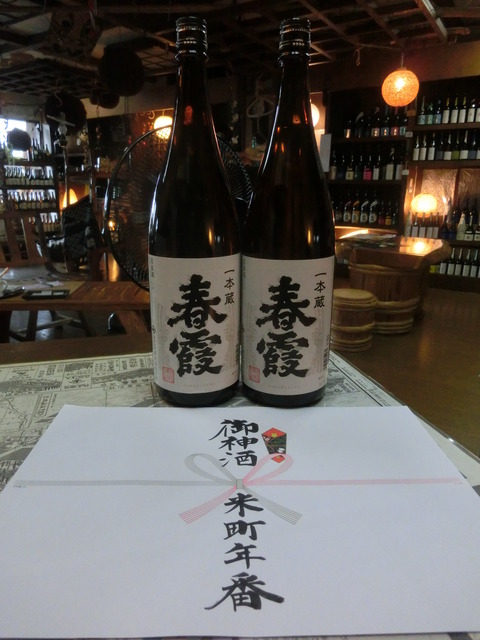 一本蔵
春霞
一本蔵
春霞
御神酒
米町年番